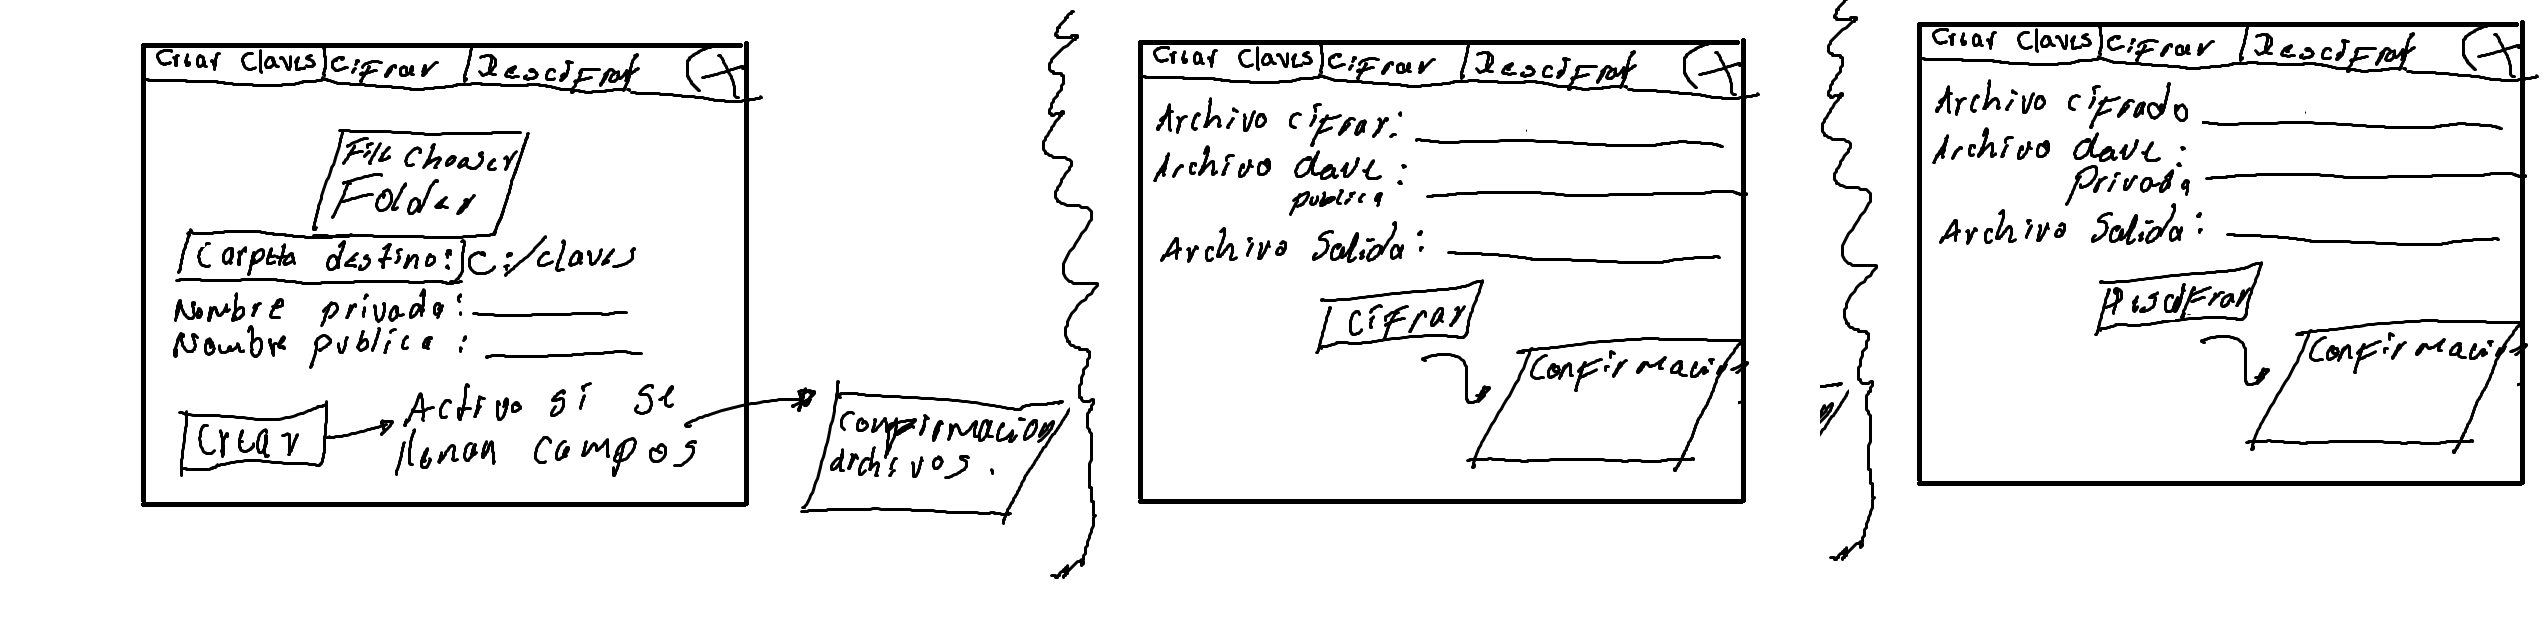 Crear Claves Cifrar Descifrar X
File Chooser
Folder
Carpeta destino: C:/claves
Nombre privada:
Nombre publica:
Crear
Activo si se
llenan campos
Confirmacion
archivos.
Crear Claves Cifrar Descifrar X
Archivo cifrar:
Archivo clave:
publica
Archivo Salida:
Cifrar
Confirmación
Crear Claves Cifrar Descifrar X
Archivo cifrado
Archivo clave:
Privada
Archivo Salida:
Descifrar
Confirmación